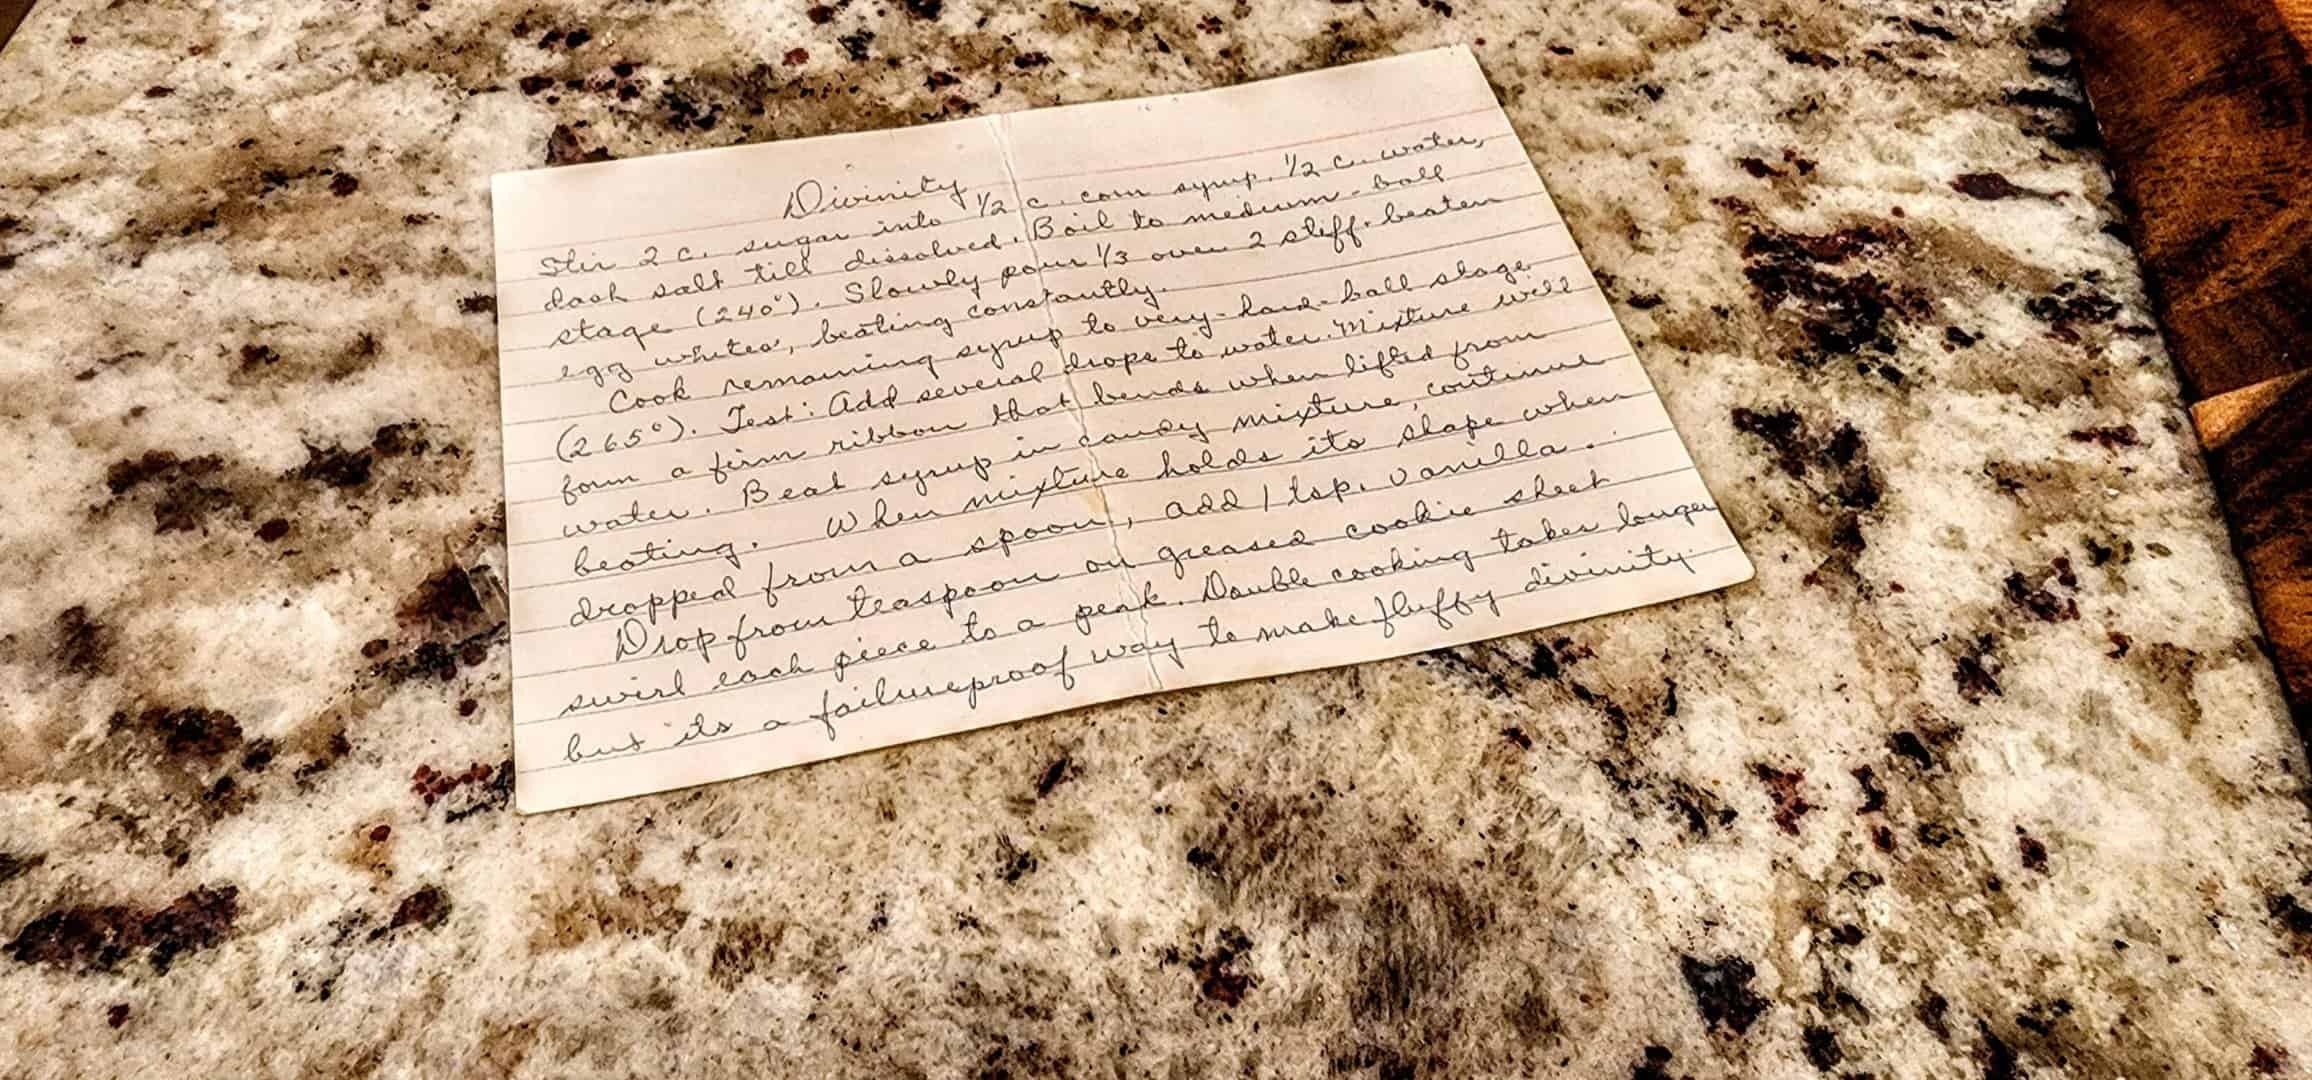 Divinity
Stir 2 c. sugar into 1/2 c. corn syrup, 1/2 c. water,
dash salt till dissolved. Boil to medium-ball
stage (240°). Slowly pour 1/3 over 2 stiff-beaten
egg whites, beating constantly.
Cook remaining syrup to very-hard-ball stage
(265°). Test: Add several drops to water. Mixture will
form a firm ribbon that bends when lifted from
water. Beat syrup in candy mixture, continue
beating. When mixture holds its shape when
dropped from a spoon, add 1 tsp. vanilla.
Drop from teaspoon on greased cookie sheet
swirl each piece to a peak. Double cooking takes longer
but its a failureproof way to make fluffy divinity.